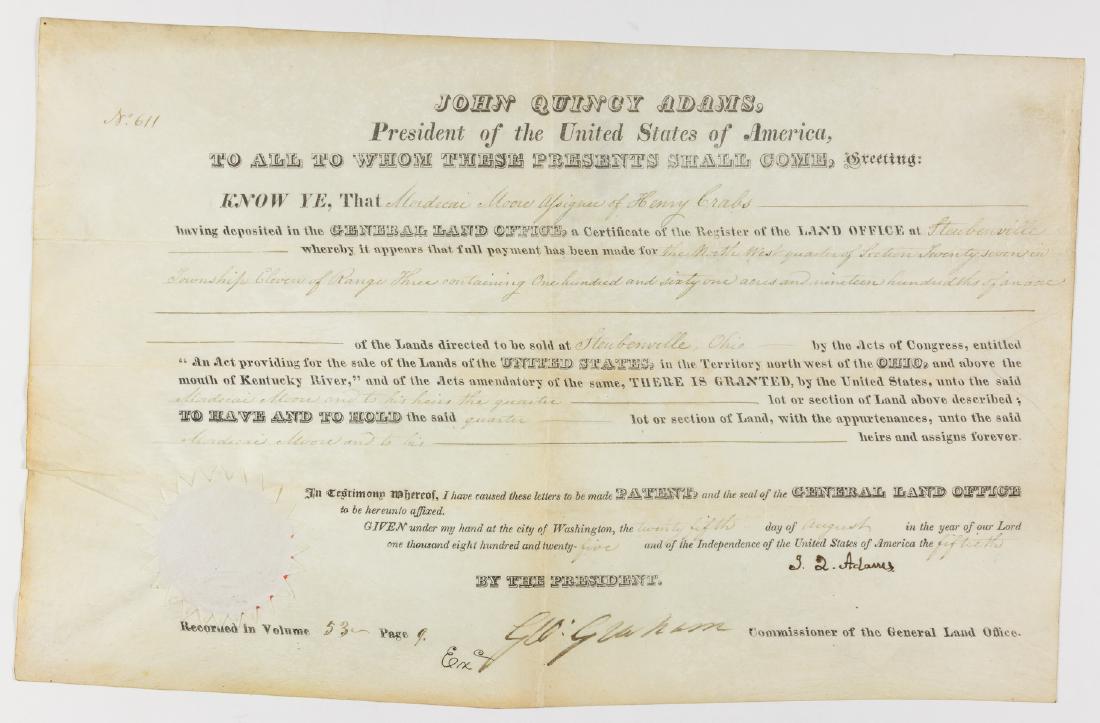 JOHN QUINCY ADAMS,
No 611
President of the United States of America,
TO ALL TO WHOM THESE PRESENTS SHALL COME, Greeting:
KNOW YE, That Mordecai Moore assignee of Henry Crabs
having deposited in the GENERAL LAND OFFICE, a Certificate of the Register of the LAND OFFICE at Steubenville
whereby it appears that full payment has been made for the North West quarter of Section Twenty seven in
Township Eleven of Range Three containing One hundred and sixty one acres and nineteen hundredths of an acre
of the Lands directed to be sold at Steubenville, Ohio by the Acts of Congress, entitled
"An Act providing for the sale of the Lands of the UNITED STATES, in the Territory north west of the OHIO, and above the
mouth of Kentucky River," and of the Acts amendatory of the same, THERE IS GRANTED, by the United States, unto the said
Mordecai Moore and to his heirs the quarter lot or section of Land above described;
TO HAVE AND TO HOLD the said quarter lot or section of Land, with the appurtenances, unto the said
Mordecai Moore and to his heirs and assigns forever.
In Testimony Whereof, I have caused these letters to be made PATENT, and the seal of the GENERAL LAND OFFICE
to be hereunto affixed.
GIVEN under my hand at the city of Washington, the twenty fifth day of August in the year of our Lord
one thousand eight hundred and twenty-five and of the Independence of the United States of America the fiftieth
J. Q. Adams
BY THE PRESIDENT.
Recorded in Volume 53 Page 9.
Geo: Graham Commissioner of the General Land Office.
Exd